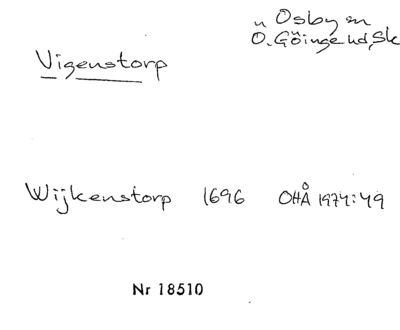 n Osby sn
Vigenstorp
Ö. Göinge hd, Sk
Wijkenstorp 1696 OHÅ 1974:49
Nr 18510